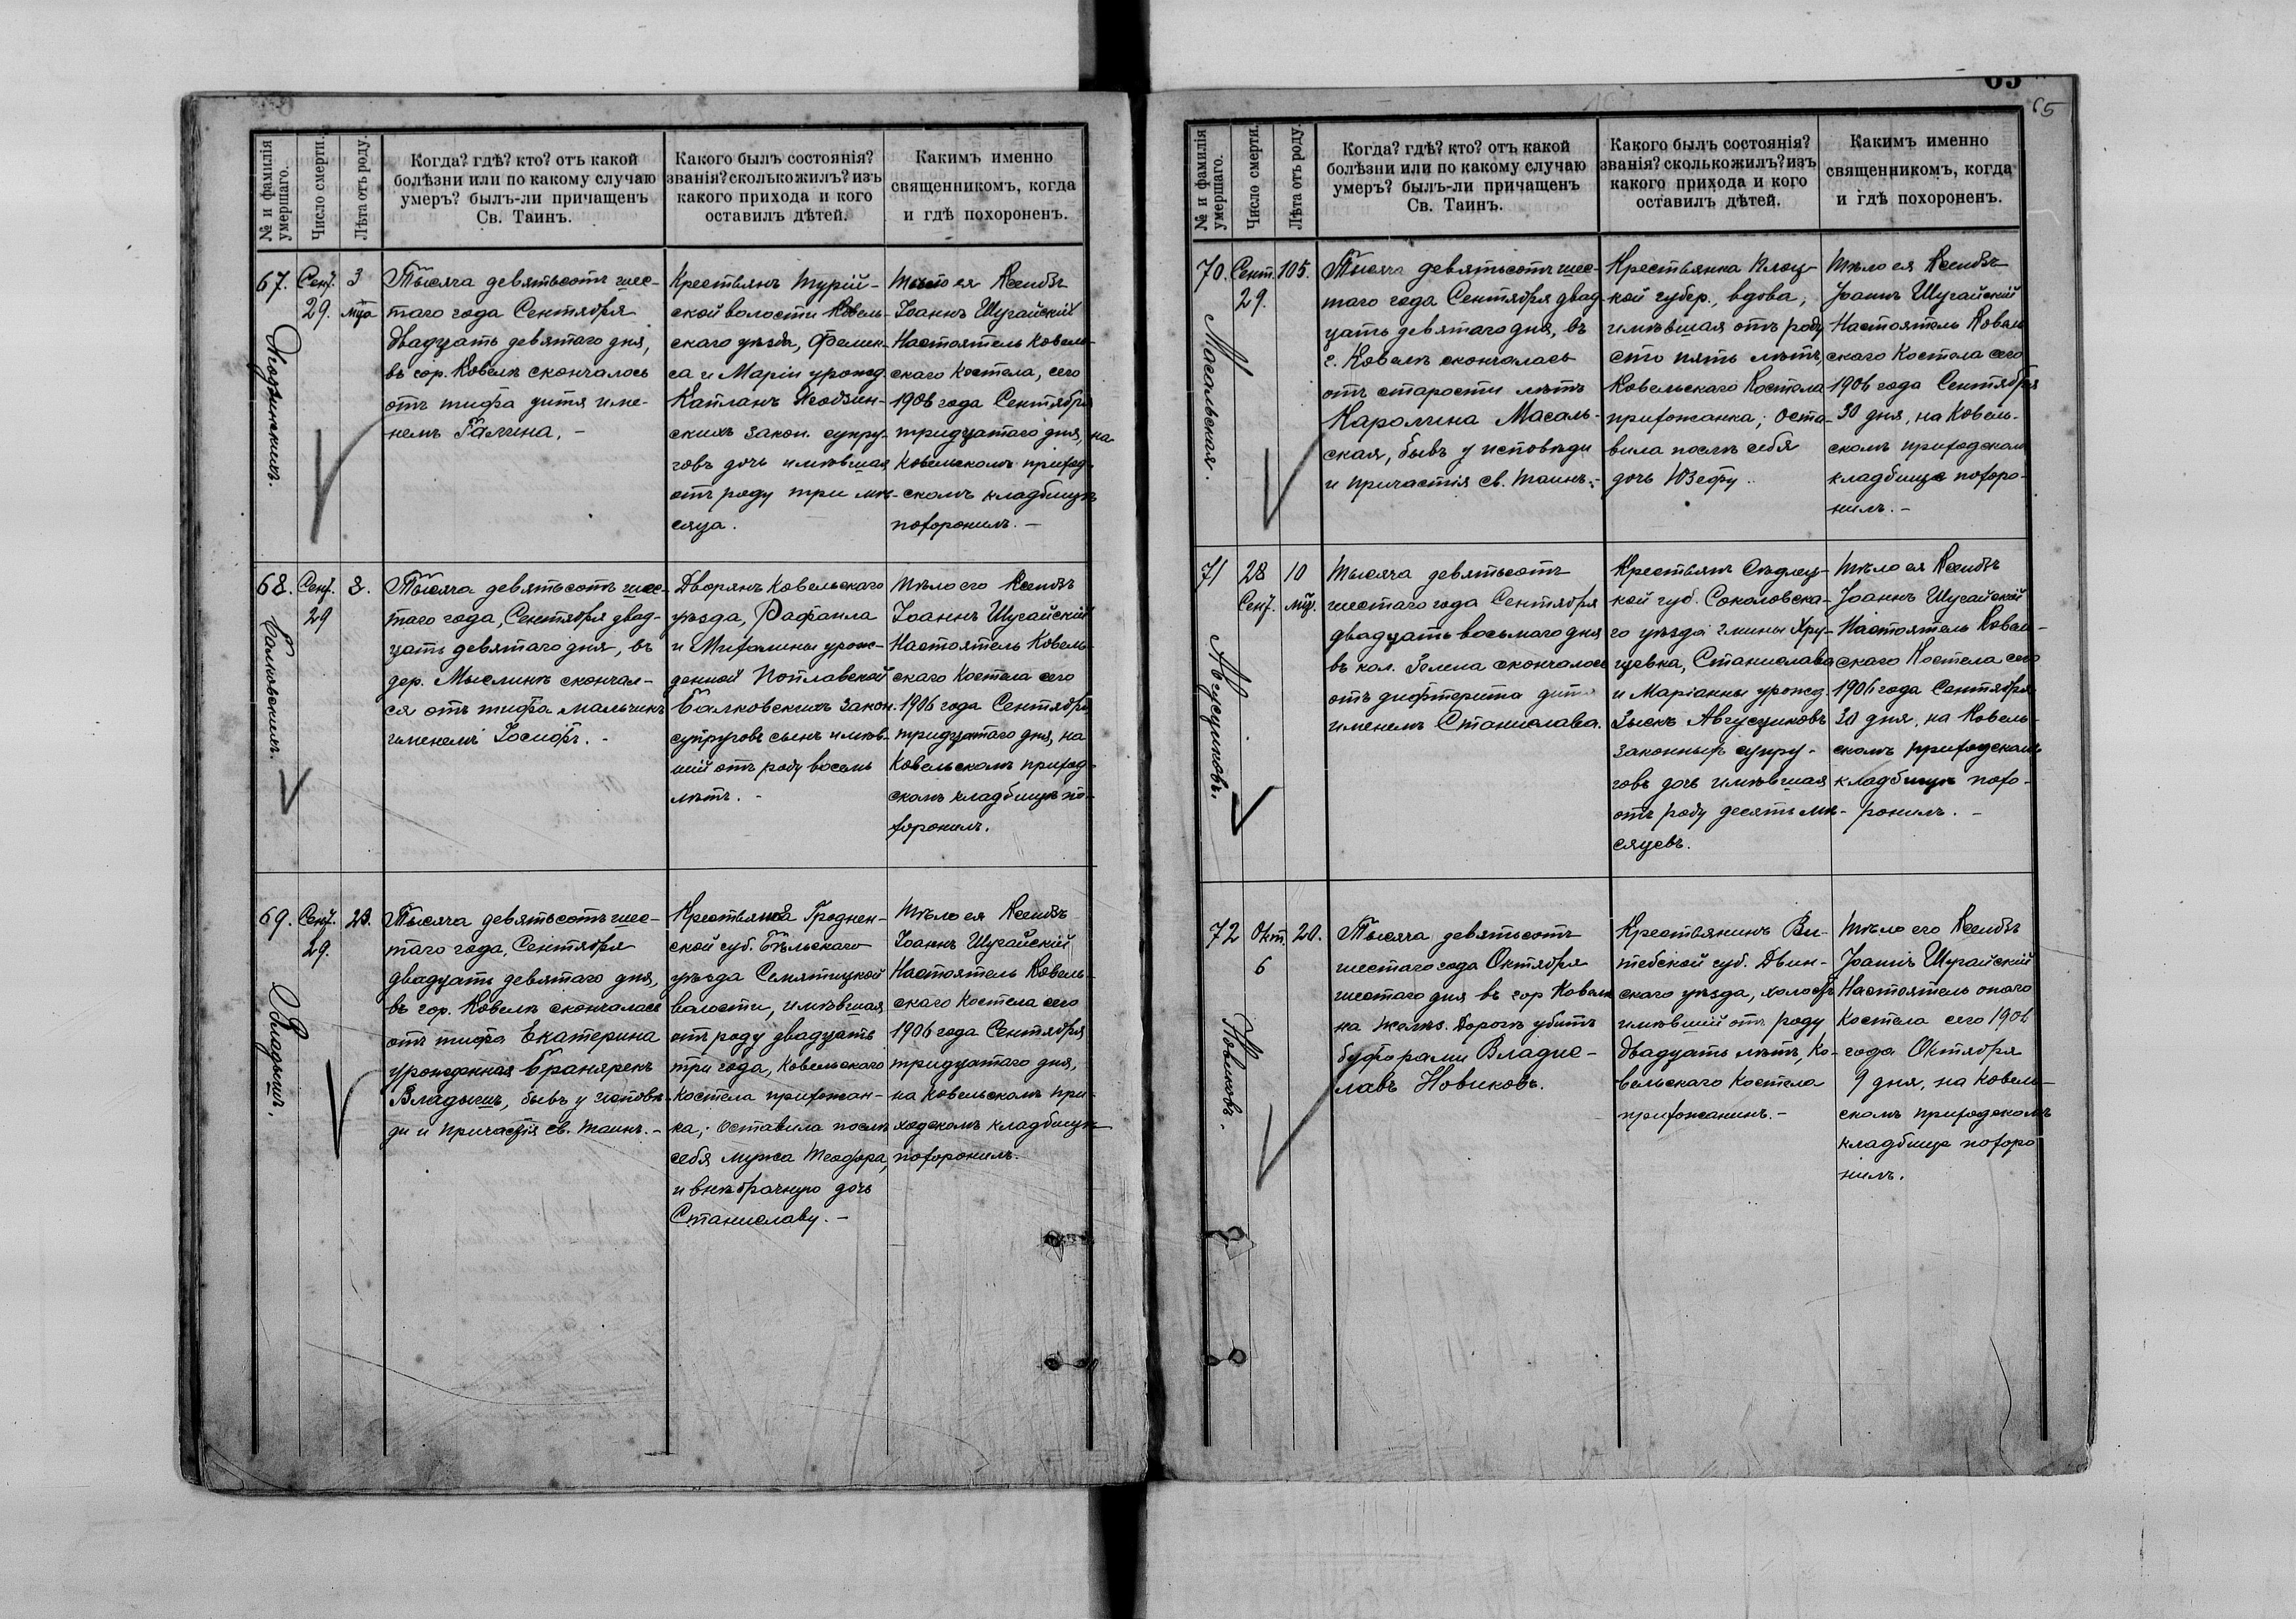 № и фамилія умершаго.
Число смерти.
Лѣта отъ роду.
Когда? гдѣ? кто? отъ какой
болѣзни или по какому случаю
умеръ? былъ-ли причащенъ
Св. Таинъ.
Какого былъ состоянія?
званія? сколько жилъ? изъ
какого прихода и кого
оставилъ дѣтей.
Какимъ именно
священникомъ, когда
и гдѣ похороненъ.
67.
Сент.
29.
3
мца
Тысяча девятьсотъ шес-
таго года Сентября
двадцать девятаго дня,
въ гор. Ковелѣ скончалось
отъ тифа дитя име-
немъ Галина. -
Крестьянъ Турій-
ской волости Ковель-
скаго уѣзда, Феликса
и Маріи урожд.
Капланъ
скихъ закон. супру-
говъ дочь имѣвшая
отъ роду три мѣ-
сяца.
Тѣло ея Ксендзъ
Іоаннъ Шугайскій
Настоятель Ковель-
скаго Костела, сего
1906 года Сентября
тридцатаго дня, на
Ковельскомъ приход-
скомъ кладбищѣ
похоронилъ. -
68.
Балковскихъ.
Сент.
29
8.
Тысяча девятьсотъ шес-
таго года, Сентября двад-
цать девятаго дня, въ
дер. Мыслинѣ скончал-
ся отъ тифа мальчикъ
именемъ Іосифъ. -
Дворянъ Ковельскаго
уѣзда, Рафаила
и Михалины урож-
денной Поплавской
Балковскихъ закон.
супруговъ сынъ имѣв-
шій отъ роду восемь
лѣтъ. -
Тѣло его Ксендзъ
Іоаннъ Шугайскій
Настоятель Ковель-
скаго Костела сего
1906 года Сентября
тридцатаго дня, на
Ковельскомъ приход-
скомъ кладбищѣ по-
хоронилъ.
69.
Владышъ.
Сент.
29.
23.
Тысяча девятьсотъ шес-
таго года, Сентября
двадцать девятаго дня,
въ гор. Ковелѣ скончалась
отъ тифа Екатерина
урожденная Бранярекъ
Владышъ, бывъ у исповѣ-
ди и причастія св. таинъ. -
Крестьянка Гроднен-
ской губ. Бѣльскаго
уѣзда Семятицкой
волости, имѣвшая
отъ роду двадцать
три года, Ковельскаго
Костела прихожан-
ка; оставила послѣ
себя мужа Теофора,
и внѣбрачную дочь
Станиславу. -
Тѣло ея Ксендзъ
Іоаннъ Шугайскій
Настоятель Ковель-
скаго Костела сего
1906 года Сентября
тридцатаго дня,
на Ковельскомъ при-
ходскомъ кладбищѣ
похоронилъ.
65
№ и фамилія умершаго.
Число смерти.
Лѣта отъ роду.
Когда? гдѣ? кто? отъ какой
болѣзни или по какому случаю
умеръ? былъ-ли причащенъ
Св. Таинъ.
Какого былъ состоянія?
званія? сколько жилъ? изъ
какого прихода и кого
оставилъ дѣтей.
Какимъ именно
священникомъ, когда
и гдѣ похороненъ.
70.
Масальская.
Сент.
29.
105.
Тысяча девятьсотъ шес-
таго года Сентября двад-
цать девятаго дня, въ
г. Ковелѣ скончалась
отъ старости лѣтъ
Каролина Масаль-
ская, бывъ у исповѣди
и причастія св. таинъ. -
Крестьянка Плоц-
кой губер., вдова,
имѣвшая отъ роду
сто пять лѣтъ,
Ковельскаго Костела
прихожанка; оста-
вила послѣ себя
дочь Юзефу.
Тѣло ея Ксендзъ
Іоаннъ Шугайскій
Настоятель Ковель-
скаго Костела сего
1906 года Сентября
30 дня, на Ковель-
скомъ приходскомъ
кладбищѣ похоро-
нилъ. -
71
Августиковъ.
28
Сент.
10
мцв.
Тысяча девятьсотъ
шестаго года Сентября
двадцать восьмаго дня
въ кол. Зелена скончалось
отъ дифтерита дитя
именемъ Станислава.
Крестьянъ Сѣдлец-
кой губ. Соколовска-
го уѣзда гмины Хру-
щевка, Станислава
и Маріанны урожд.
Зыскъ
законныхъ супру-
говъ дочь имѣвшая
отъ роду десять мѣ-
сяцевъ.
Тѣло ея Ксендзъ
Іоаннъ Шугайскій
Настоятель Ковель-
скаго Костела сего
1906 года Сентября
30 дня, на Ковель-
скомъ приходскомъ
кладбищѣ похо-
ронилъ. -
72
Новиковъ.
Окт.
6
20.
Тысяча девятьсотъ
шестаго года Октября
шестаго дня въ гор Ковелѣ
на желѣз. дорогѣ убитъ
буферами Владис-
лавъ Новиковъ.
Крестьянинъ Ви-
тебской губ. Двин-
скаго уѣзда, холостъ
имѣвшій отъ роду
двадцать лѣтъ, Ко-
вельскаго Костела
прихожанинъ. -
Тѣло его Ксендзъ
Іоаннъ Шугайскій
Настоятель онаго
Костела сего 1906
года Октября
9 дня, на Ковель-
скомъ приходскомъ
кладбищѣ похоро
нилъ.